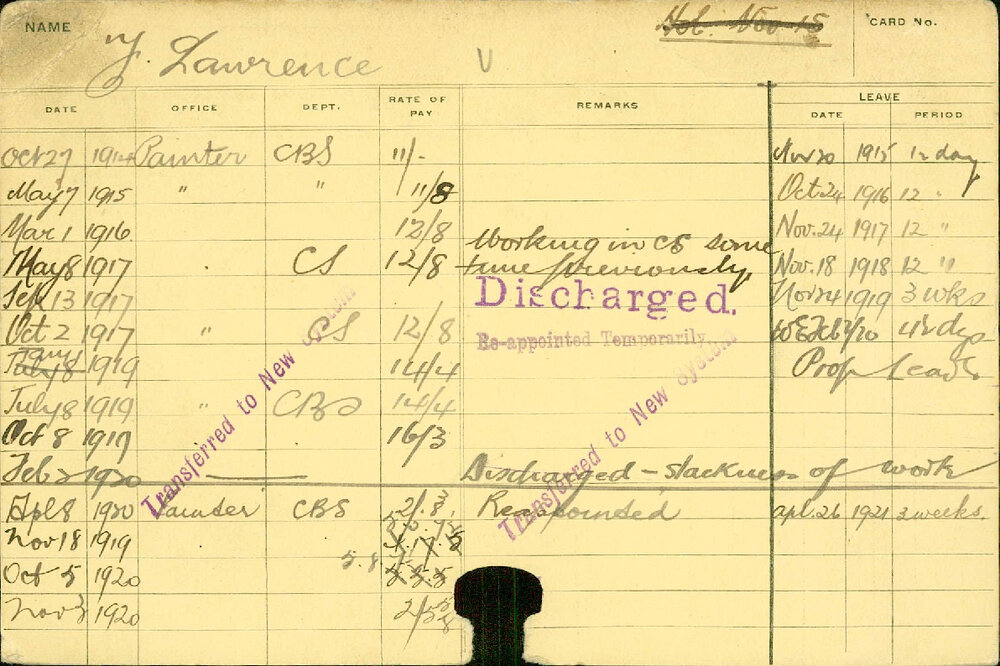 NAME
Hol. Nov 15
CARD No.
F. Lawrence V
DATE OFFICE DEPT. RATE OF PAY REMARKS LEAVE
DATE PERIOD
Oct 27 1914 Painter CBS 11/- Nov 20 1915 12 day
May 7 1915 " " 11/8 Oct 24 1916 12 "
Mar 1 1916 12/8 Nov. 24 1917 12 "
Working in CS some
May 8 1917 CS 12/8 time previously Nov. 18 1918 12 "
Feb 13 1917 Discharged. Nov 24 1919 3 wks
Oct 2 1917 " CS 12/8 Re-appointed Temporarily. WE Feb 7/20 4½ dys
July 8 1919 14/4 Prop Leave
July 8 1919 " CBS 14/4
Oct 8 1917 16/3
Feb 2 1920 Discharged - slackness of work
Apl 8 1920 Painter CBS Reappointed apl. 26 1921 3 weeks.
Nov 18 1919
Oct 5 1920
Nov 3 1920
Transferred to New System
Transferred to New System